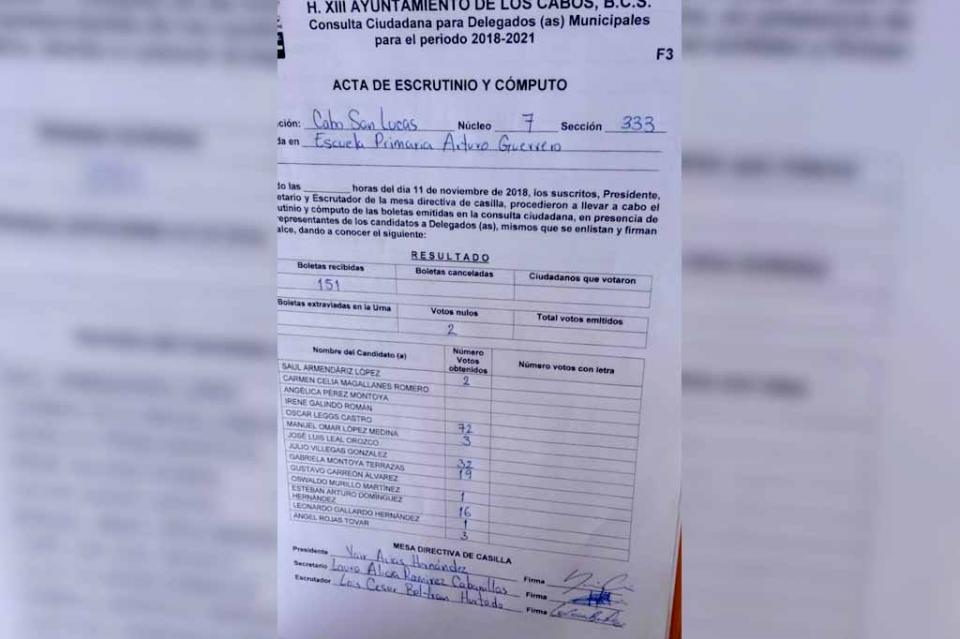 H. XIII AYUNTAMIENTO DE LOS CABOS, B.C.S.
Consulta Ciudadana para Delegados (as) Municipales
para el periodo 2018-2021
F3
ACTA DE ESCRUTINIO Y CÓMPUTO
ción: Cabo San Lucas Núcleo 7 Sección 333
da en Escuela Primaria Arturo Guerrero
do las ________ horas del dia 11 de noviembre de 2018, los suscritos, Presidente,
etario y Escrutador de la mesa directiva de casilla, procedieron a llevar a cabo el
utinio y cómputo de las boletas emitidas en la consulta ciudadana, en presencia de
epresentantes de los candidatos a Delegados (as), mismos que se enlistan y firman
alce, dando a conocer el siguiente:
RESULTADO
Boletas recibidas Boletas canceladas Ciudadanos que votaron
151
Boletas extraviadas en la Urna Votos nulos Total votos emitidos
2
Nombre del Candidato (a) Número Votos obtenidos Número votos con letra
SAUL ARMENDÁRIZ LÓPEZ 2
CARMEN CELIA MAGALLANES ROMERO
ANGÉLICA PÉREZ MONTOYA
IRENE GALINDO ROMÁN
OSCAR LEGGS CASTRO 72
MANUEL OMAR LÓPEZ MEDINA 3
JOSÉ LUIS LEAL OROZCO
JULIO VILLEGAS GONZALEZ 32
GABRIELA MONTOYA TERRAZAS 19
GUSTAVO CARREÓN ÁLVAREZ
OSWALDO MURILLO MARTÍNEZ 1
ESTEBAN ARTURO DOMÍNGUEZ
HERNÁNDEZ 16
LEONARDO GALLARDO HERNÁNDEZ 1
ÁNGEL ROJAS TOVAR 3
MESA DIRECTIVA DE CASILLA
Presidente Yair Arias Hernández Firma
Secretario Laura Alicia Ramirez Cabanillas Firma
Escrutador Luis Cesar Beltran Hurtado Firma